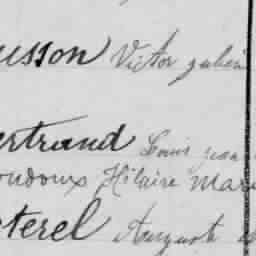 usson Victor julien
ertrand Louis jean
oudoux Hilaire Marie
eterel Auguste